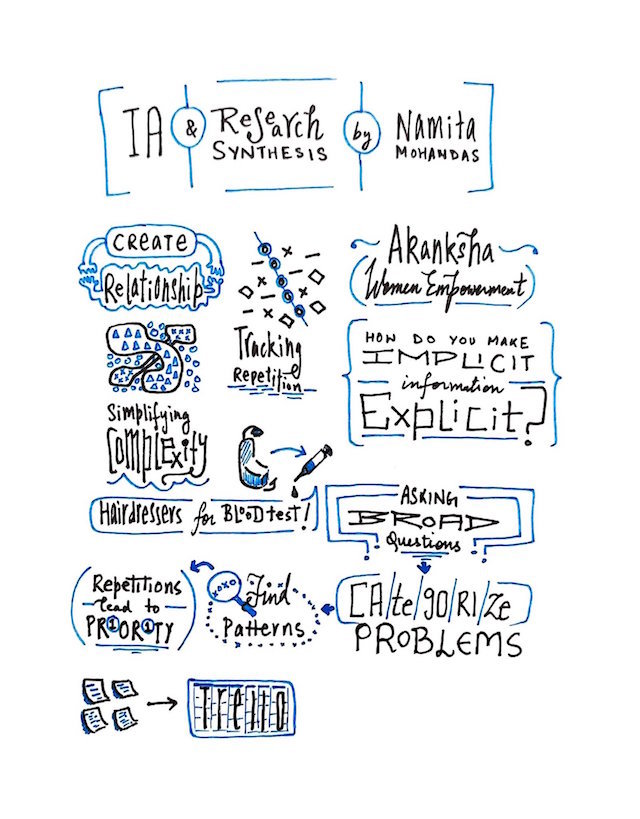 IA & Research SYNTHESIS by Namita MOHANDAS
CREATE
Relationship
Tracking
REPETITION
Akanksha
Women Empowerment
HOW DO YOU MAKE
IMPLICIT
information
Explicit?
Simplifying
COMPLEXITY
Hairdressers for BLOOD test!
ASKING
BROAD
Questions
CA/te/gO/RI/Ze
PROBLEMS
XOXO
Find
Patterns
Repetitions
lead to
PRIORITY
Trello